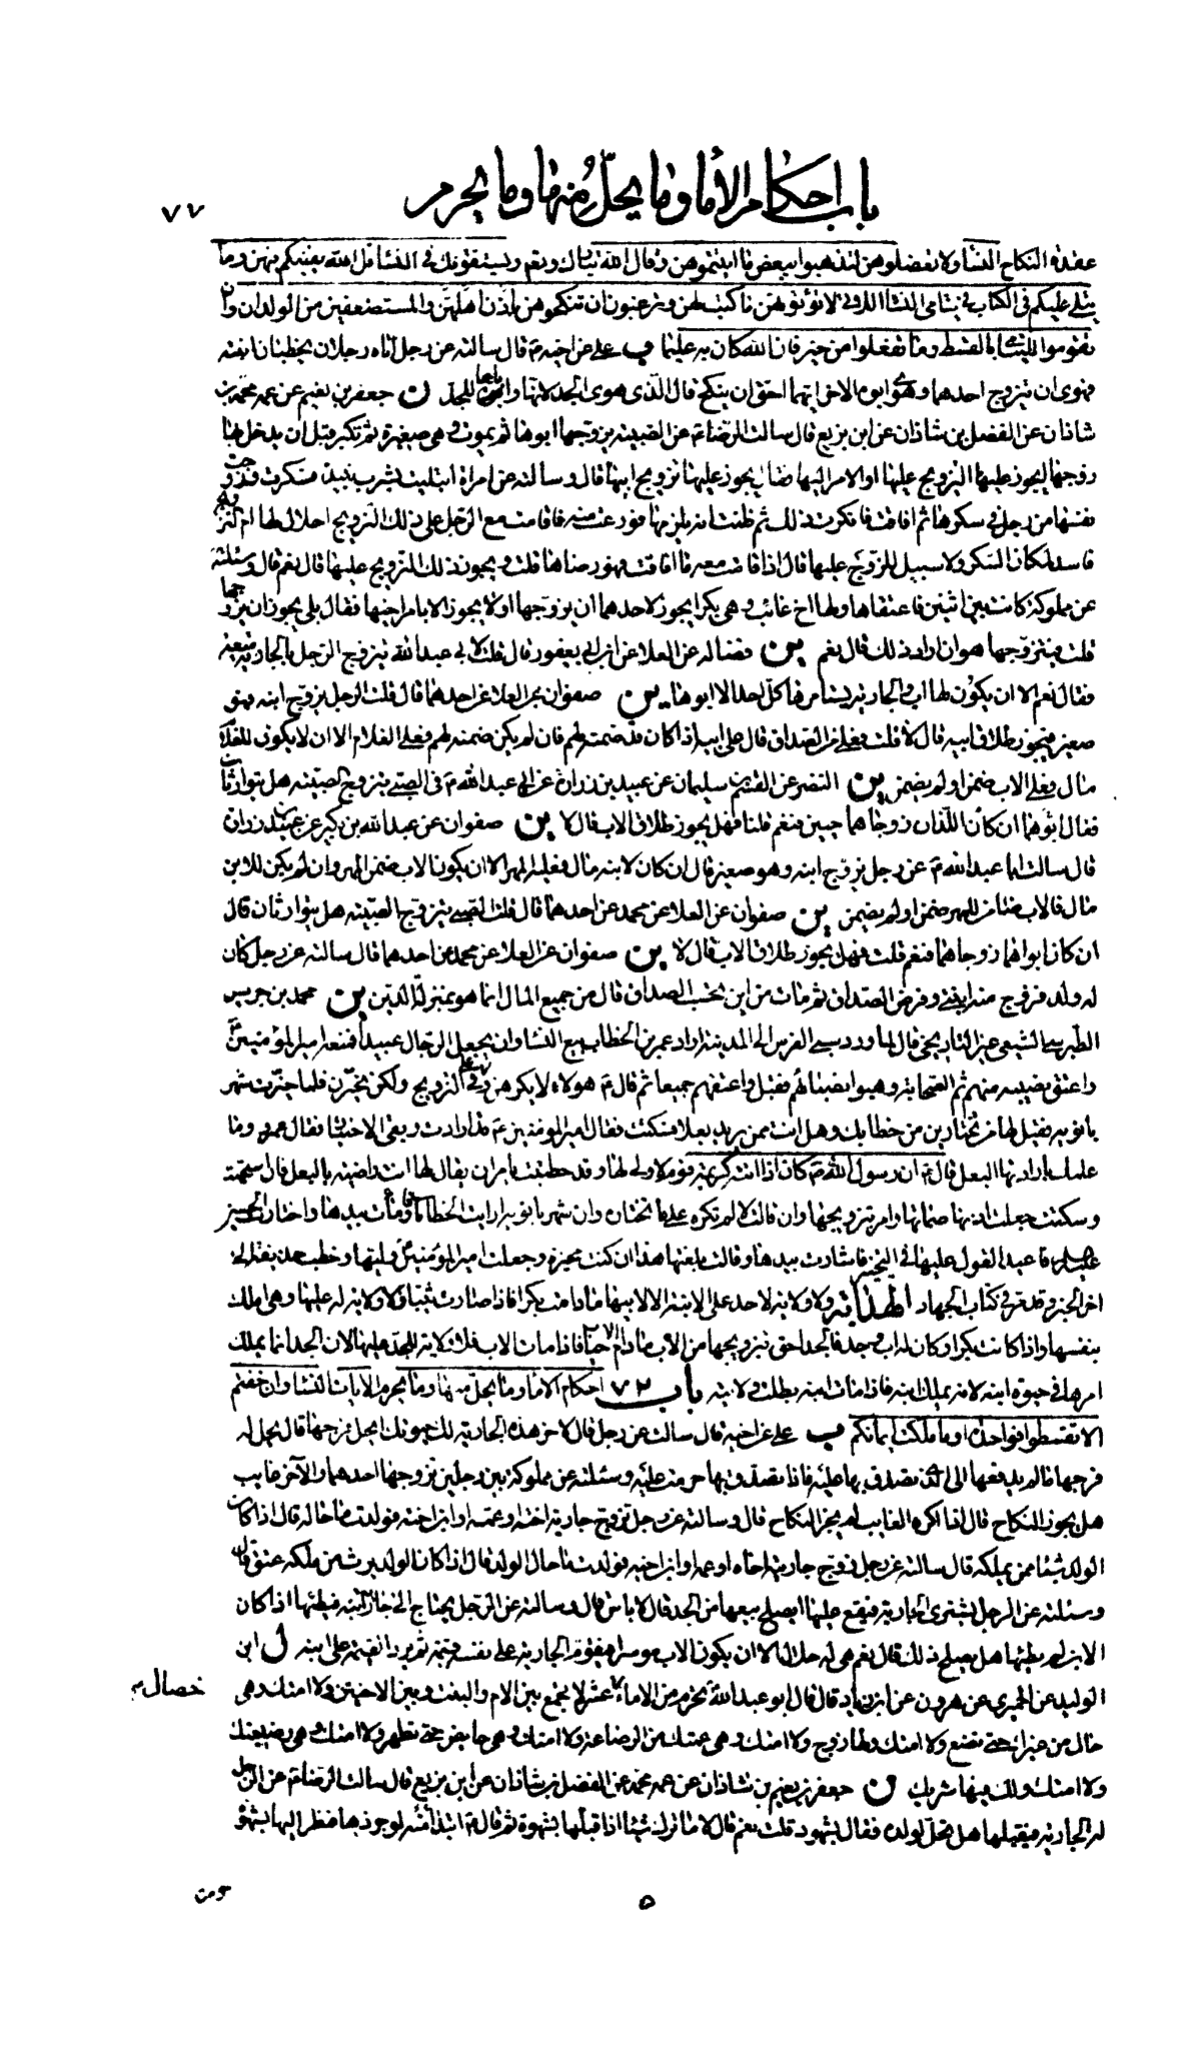 باب احكام الأماء وما يحلّ منها وما يحرم
٧٧
عقدة النكاح النساء ولا تعضلوهن لتذهبوا ببعض ما اتيتموهن وقال الله تبارك وتعالى ويستفتونك في النساء قل الله يفتيكم فيهن وما
يتلى عليكم في الكتاب في يتامى النساء اللاتي لا تؤتونهن ما كتب لهن وترغبون ان تنكحوهن باذن اهلهن والمستضعفين من الولدان وان
تقوموا لليتامى بالقسط وما تفعلوا من خير فان الله كان به عليما ب علي عن اخيه ع قال سالته عن رجل اتاه رجلان يخطبان ابنته
فهوى ان يزوج احدهما وهوى ابوه الاخر ايهما احق ان ينكح قال الذي هوى الجد لانها واباها للجد ن جعفر بن نعيم عن عمه محمد بن
شاذان عن الفضل بن شاذان عن ابن بزيع قال سالت الرضا ع عن الصبية يزوجها ابوها ثم يموت وهي صغيرة ثم تكبر قبل ان يدخل بها
زوجها ايجوز عليها التزويج عليها او الامر اليها فقال يجوز عليها تزويج ابيها قال وسالته عن امراة ابتليت بشرب نبيذ فسكرت فزوجت
نفسها من رجل في سكرها ثم افاقت فانكرت ذلك ثم ظنت انه يلزمها فورعت منه فاقامت مع الرجل على ذلك التزويج احلال لها ام التزويج
فاسد لمكان السكر ولا سبيل للزوج عليها قال اذا قامت معه ما افاقت فهو رضاها قلت ويجوز ذلك التزويج عليها قال نعم قال وسئلته
عن مملوكة كانت بين اثنين فاعتقاها ولها اخ غائب وهي بكر ايجوز لاحدهما ان يزوجها او لا يجوز الا بامر اخيها فقال بلى يجوز ان يزوجها
قلت فيتزوجها هو ان اراد ذلك قال نعم ين فضاله عن العلا عن ابن ابي يعفور قال قلت لابي عبد الله يتزوج الرجل بالجارية متعة
فقال نعم الا ان يكون لها اب والجارية يستامرها كل احد الا ابوها ين صفوان عن العلا عن احدهما قال قلت الرجل يزوج ابنه وهو
صغير فيجوز طلاق ابيه قال لا قلت فعلى من الصداق قال على ابيه اذا كان قد ضمنه لهم فان لم يكن ضمنه لهم فعلى الغلام الا ان لا يكون للغلام
مال فعلى الاب ضمن او لم يضمن ين النضر عن القسم بن سليمان عن عبيد بن زرارة عن ابي عبد الله ع في الصبي يتزوج الصبية هل يتوارثان
فقال ابوهما ان كان اللذان زوجاهما حيين فنعم قلنا فهل يجوز طلاق الاب قال لا ين صفوان عن عبد الله بن بكير عن عبيد بن زرارة
قال سالت ابا عبد الله ع عن رجل يزوج ابنه وهو صغير قال ان كان لابنه مال فعليه المهر الا ان يكون الاب ضمن المهر وان لم يكن للابن
مال فالاب ضامن للمهر ضمن او لم يضمن ين صفوان عن العلا عن محمد عن احدهما قال قلت الصبي يتزوج الصبية هل يتوارثان قال
ان كان ابواهما زوجاهما فنعم قلت فهل يجوز طلاق الاب قال لا ين صفوان عن العلا عن محمد عن احدهما قال سالته عن رجل كان
له ولد فزوج منهم اثنين وفرض الصداق ثم مات من اين يحسب الصداق قال من جميع المال انما هو بمنزلة الدين ين محمد بن جرير
الطبري الشيعي عن التاريخي قال لما ورد سبي الفرس الى المدينة اراد عمر بن الخطاب بيع النساء وان يجعل الرجال عبيدا فمنعه امير المؤمنين
واعتق نصيبه منهم ثم الصحابة وهبوا نصيبا لهم فقبل واعتقهم جميعا ثم قال ع هولاء لا يكرهن على التزويج ولكن يخيرن فلما خيرت شهر
بانويه فقيل لها من تختارين من خطابك وهل انت ممن يريد بعلا فسكتت فقال امير المومنين ع قد ارادت وبقى الاختيار فقال عمر وما
علمك بارادتها البعل قال ع ان رسول الله ص كان اذا اتته كريمة قوم لا ولي لها وقد خطبت يامر ان يقال لها انت راضية بالبعل فان استحيت
وسكتت جعلت اذنها صماتها وامر بتزويجها وان قالت لا لم تكره على ما تختاره وان شهر بانويه اريت الخطاب فاومات بيدها واختارت الحسين
فاعيد القول عليها في التخيير فاشارت بيدها وقالت بلغتها هذا ان كنت مخيرة وجعلت امير المؤمنين وليها وخطب حذيفة الى
اخر الخبر وقد مر في كتاب الجهاد الهداية ولا ولاية لاحد على الابنة الا لابيها ما دامت بكرا فاذا صارت ثيبا فلا ولاية له عليها وهي املك
بنفسها واذا كانت بكرا وكان لها اب وجد فالجد احق بتزويجها من الاب ما دام الاب حيا فاذا مات الاب فلا ولاية للجد عليها لان الجد انما يملك
امرها في حيوة ابنه لانه يملك ابنه فاذا مات ابنه بطلت ولايته باب ٧٢ احكام الاماء وما يحل منها وما يحرم الايات النساء وان خفتم
الا تقسطوا فواحدة او ما ملكت ايمانكم ب علي عن اخيه قال سالته عن رجل قال لاخر هذه الجارية لك حيوتك ايحل فرجها قال يحل له
فرجها ما لم يدفعها الى الذي تصدق بها عليه فاذا تصدق بها حرمت عليه وسئلته عن مملوكة بين رجلين تزوجها احدهما والآخر غايب
هل يجوز النكاح قال اذا كره الغايب لم يجز النكاح قال وسالته عن رجل تزوج جارية اخته او عمته او ابن اخته فولدت ما حاله قال اذا كان
الولد شيئا ممن يملكه قال سالته عن رجل زوج جاريته اخاه او عمه او ابن اخيه فولدت ما حال الولد قال اذا كان الولد يرث من ملكه عتق قال
وسئلته عن الرجل يشتري الجارية فيقع عليها ايصلح بيعها من الجد قال لا باس قال وسالته عن الرجل يحتاج الى جارية ابنه فيطئها اذا كان
الابن لم يطئها هل يصلح ذلك قال نعم هي له حلال الا ان يكون الاب موسرا فيقوم الجارية على نفسه قيمة ثم يرد القيمة على ابنه ل ابن
الوليد عن الحميري عن هرون عن ابن زياد قال قال ابو عبد الله يحرم من الاماء عشر لا يجمع بين الام والبنت وبين الاختين ولا امتك وهي
خصال
حامل من غيرك حتى تضع ولا امتك ولها زوج ولا امتك وهي عمتك من الرضاعة ولا امتك وهي حايض حتى تطهر ولا امتك وهي رضيعتك
ولا امتك ولك فيها شريك ن جعفر بن نعيم بن شاذان عن عمه محمد عن الفضل بن شاذان عن ابن بزيع قال سالت الرضا ع عن الرجل
له الجارية فيقبلها هل تحل لولده فقال بشهوة قلت نعم قال لا ما ترك شيئا اذا قبلها بشهوة ثم قال ع ابتداء منه لو جردها فنظر اليها بشهوة
٥
حرمت